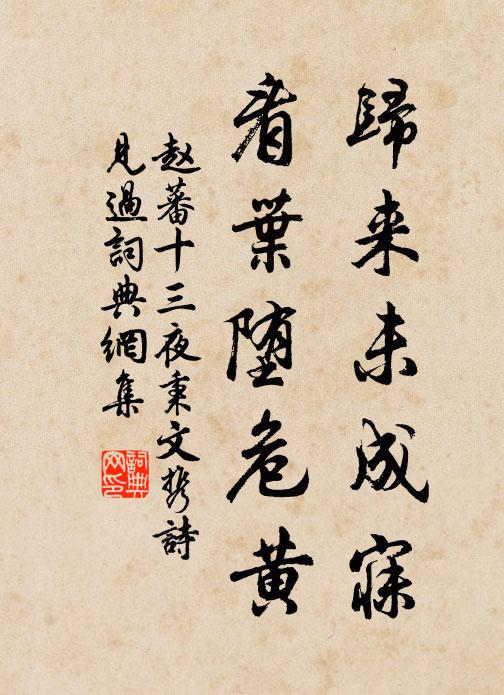 歸来未成寐
看葉堕危黄
赵蕃十三夜秉文携詩
見過詞典網集
詞典网印